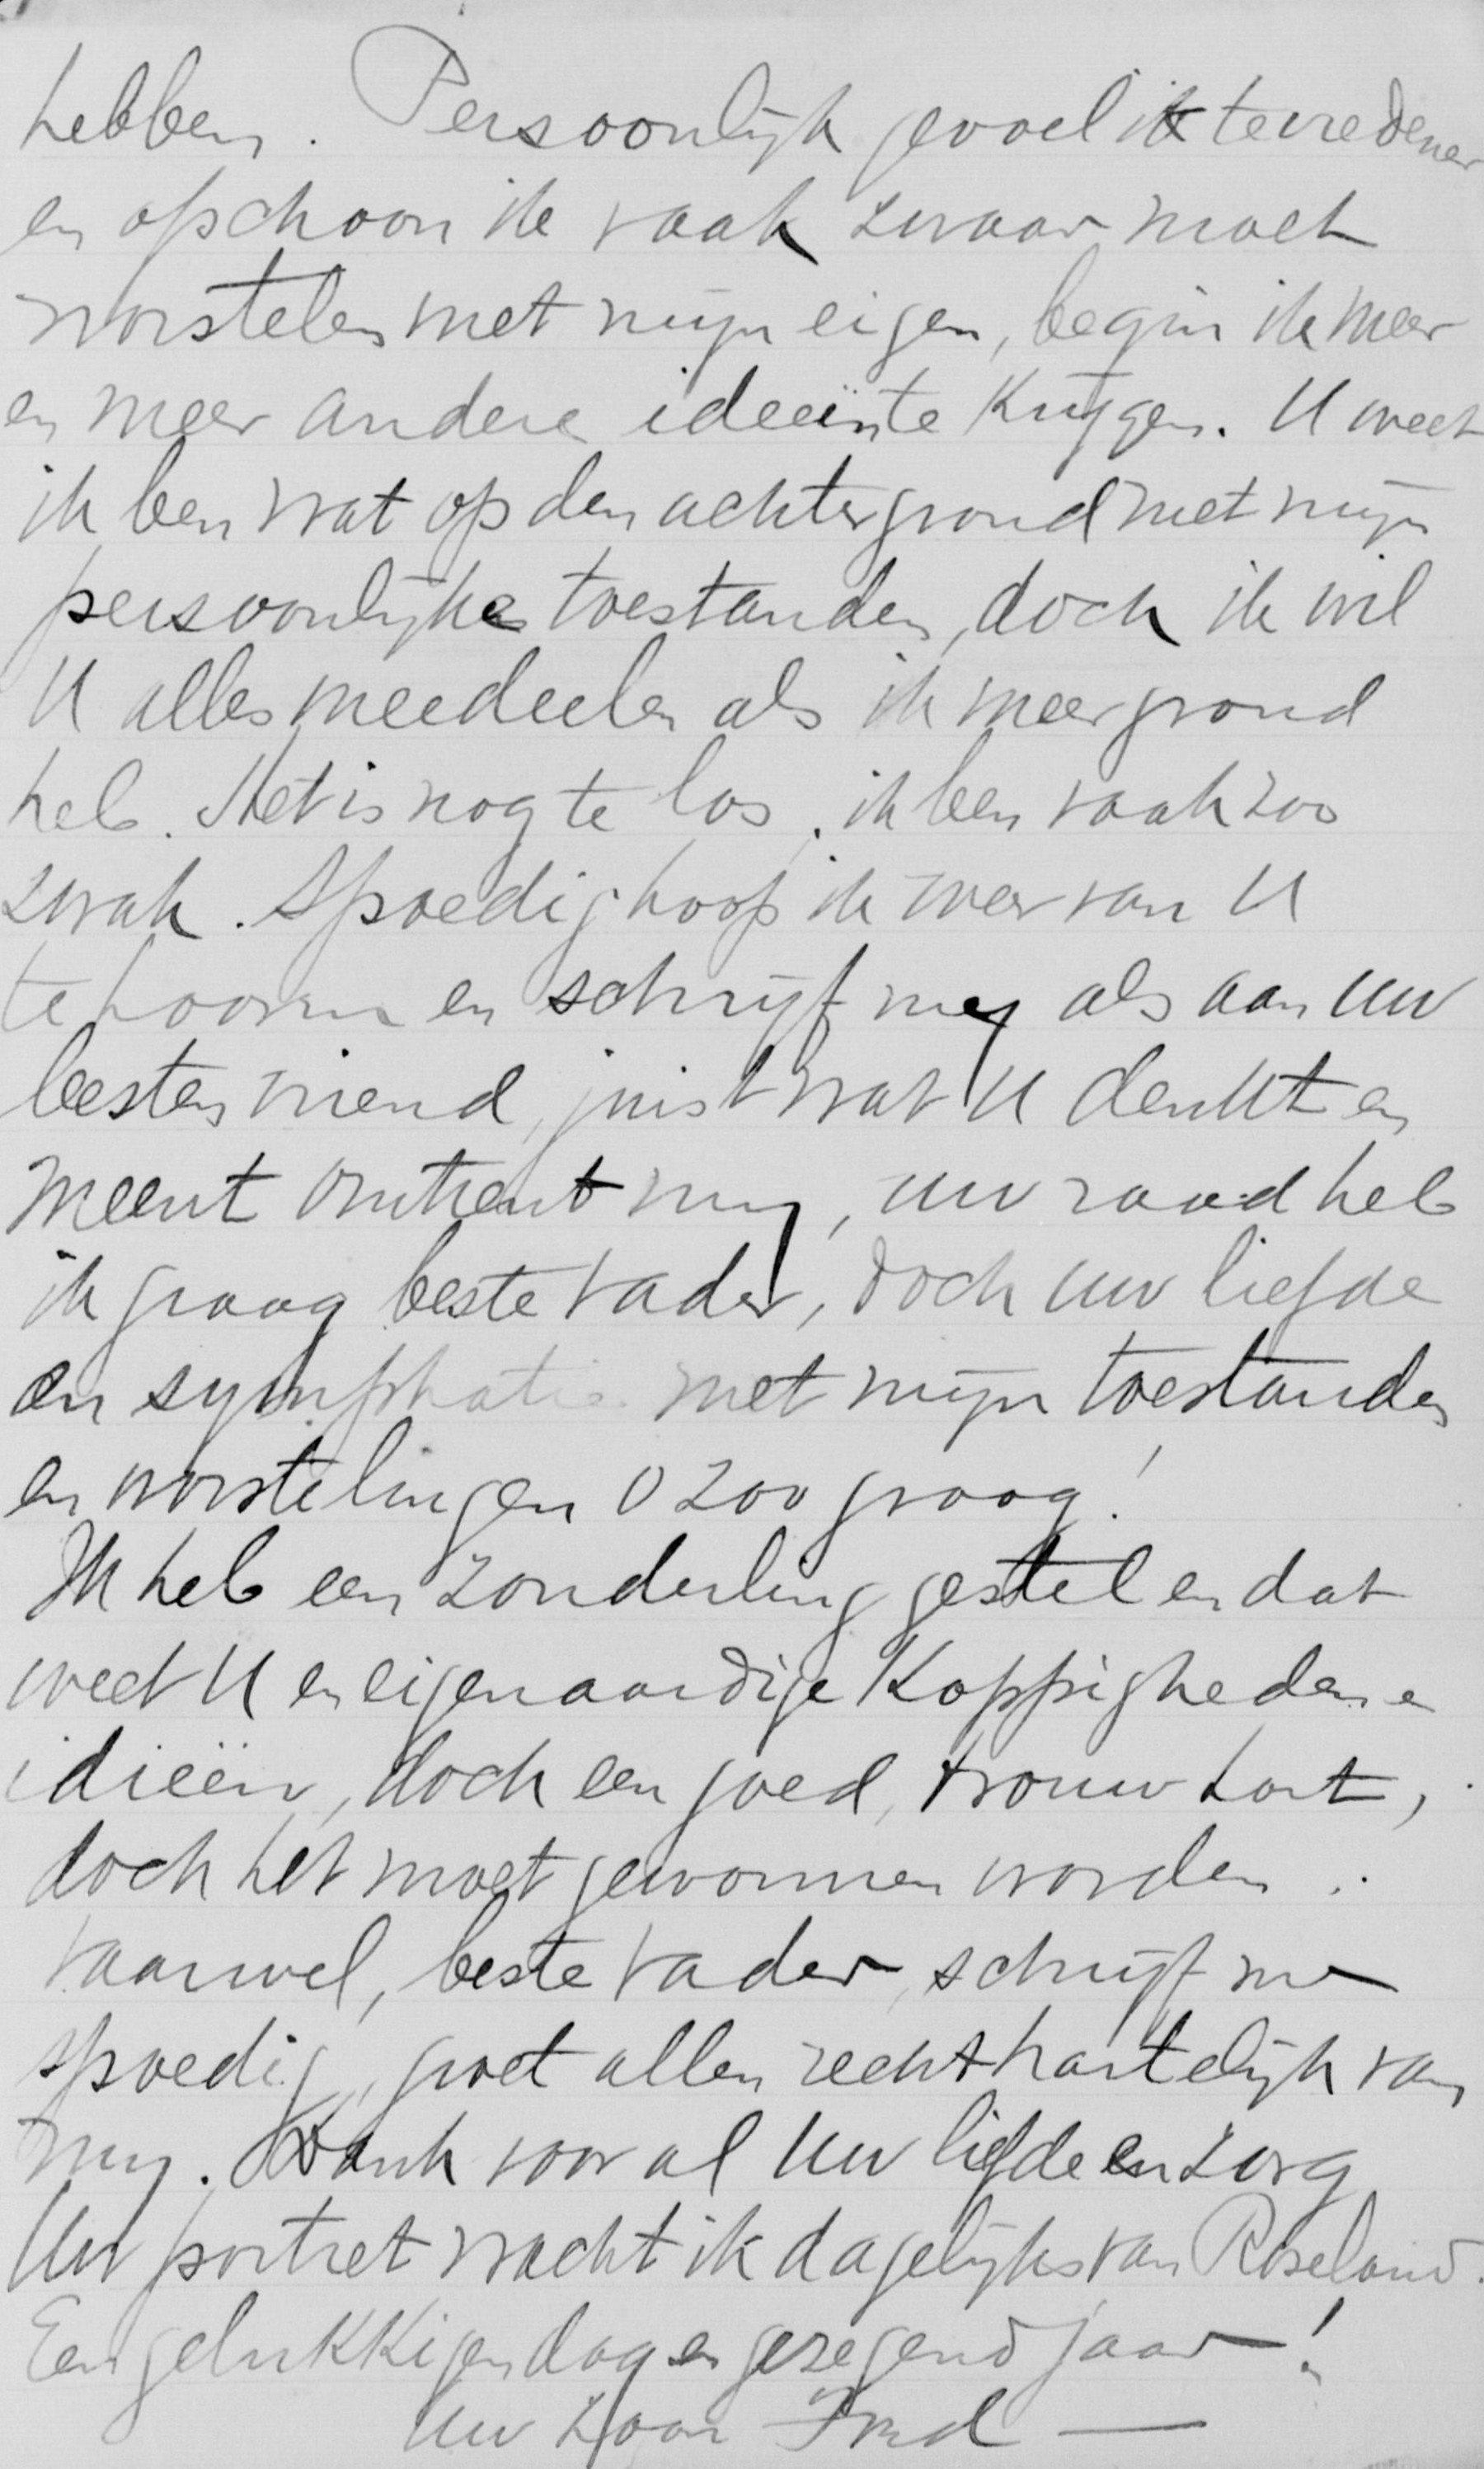 hebben. Persoonlijk gevoel ik tevredener
en opschoon ik vaak zwaar moet
worstelen met mijn eigen, begin ik meer
en meer andere ideeën te krijgen. U weet
ik ben wat op den achtergrond met mijn
persoonlijke toestanden, doch ik wil
U alles meedeelen als ik meer grond
heb. Het is nog te los, ik ben vaak zoo
zwak. Spoedig hoop ik weer van U
te hooren en schrijf mij als aan uw
besten vriend, juist wat U denkt en
meent omtrent mij, uw raad heb
ik graag beste vader, doch uw liefde
en symphatie met mijn toestanden
en worstelingen o zoo graag!
Ik heb een zonderling gestel en dat
weet U en eigenaardige koppigheden en
idieën, doch een goed, trouw hart,
doch het moet gewonnen worden.
Vaarwel, beste vader, schrijf me
spoedig, groet allen recht hartelijk van
mij. Dank voor al uw liefde en zorg
Uw portret wacht ik dagelijks van Roseland.
Een gelukkigen dag en gezegend jaar!
Uw zoon Fred —